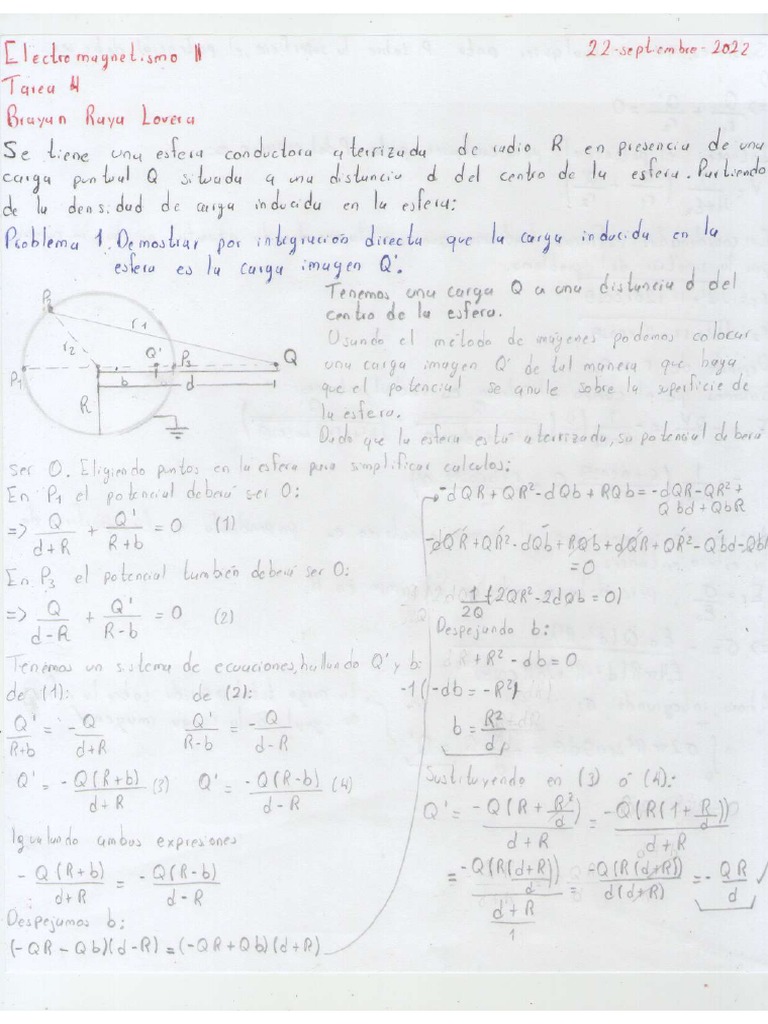 Electromagnetismo II
22-septiembre-2022
Tarea 4
Brayan Raya Lovera
Se tiene una esfera conductora aterrizada de radio R en presencia de una
carga puntual Q situada a una distancia d del centro de la esfera. Partiendo
de la densidad de carga inducida en la esfera:
Problema 1. Demostrar por integración directa que la carga inducida en la
esfera es la carga imagen Q'.
Tenemos una carga Q a una distancia d del
centro de la esfera.
Usando el método de imágenes podemos colocar
una carga imagen Q' de tal manera que haga
que el potencial se anule sobre la superficie de
la esfera.
Dado que la esfera está aterrizada, su potencial deberá
r1
r2
Q'
P3
Q
P1
b
d
R
ser 0. Eligiendo puntos en la esfera para simplificar calculos:
En P1 el potencial deberá ser 0:
=> Q/(d+R) + Q'/(R+b) = 0 (1)
En P3 el potencial también deberá ser 0:
=> Q/(d-R) + Q'/(R-b) = 0 (2)
Tenemos un sistema de ecuaciones, hallando Q' y b:
de (1): de (2):
Q'/(R+b) = -Q/(d+R) Q'/(R-b) = -Q/(d-R)
Q' = -Q(R+b)/(d+R) (3) Q' = -Q(R-b)/(d-R) (4)
Igualando ambas expresiones
-Q(R+b)/(d+R) = -Q(R-b)/(d-R)
Despejamos b:
(-QR-Qb)(d-R)=(-QR+Qb)(d+R)
-dQR+QR²-dQb+RQb=-dQR-QR²+
Qbd+QbR
-dQR+QR²-dQb+RQb+dQR+QR²-Qbd-QbR
=0
1/2Q (2QR²-2dQb=0)
Despejando b:
R²-db=0
-1(-db=-R²)
b = R²/d
Sustituyendo en (3) ó (4):
Q' = -Q(R+R²/d)/(d+R) = -Q(R(1+R/d))/(d+R)
= -Q(R(d+R)/d)/((d+R)/1) = -Q(R(d+R))/(d(d+R)) = -QR/d